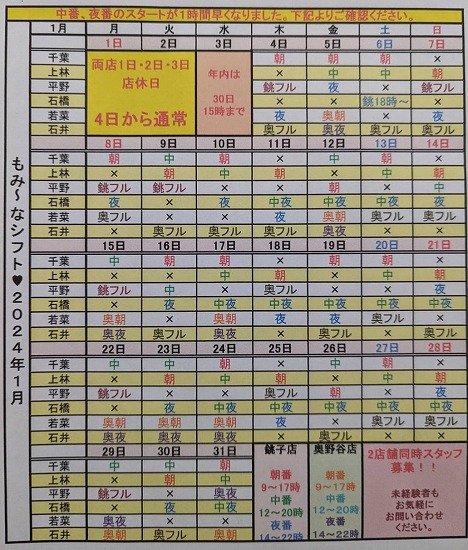 中番、夜番のスタートが1時間早くなりました。下記よりご確認ください。
もみ～なシフト♥2024年1月
1月 月 火 水 木 金 土 日
1日 2日 3日 4日 5日 6日 7日
両店1日・2日・3日
店休日
4日から通常
年内は
30日
15時まで
千葉 朝 朝 × 朝
上林 × 中 中 朝
平野 銚フル 夜 × 銚フル
石橋 × × 銚18時～ ×
若菜 夜 奥朝 × 夜
石井 奥フル 奥夜 奥フル 奥フル
8日 9日 10日 11日 12日 13日 14日
千葉 朝 中 朝
上林 × 朝 中
平野 銚フル 銚フル ×
石橋 夜 × 夜 中夜 中夜 中夜 中夜
若菜 奥フル × × 夜 奥朝 奥フル 奥フル
石井 × 奥フル 奥フル 奥フル 奥夜 × ×
15日 16日 17日 18日 19日 20日 21日
千葉
上林
平野 銚フル
石橋 × 夜 中夜 中夜 夜 中夜 中夜
若菜 奥朝 × 奥朝 夜 夜 奥フル
石井 奥夜 奥フル 奥夜 奥フル 奥フル ×
22日 23日 24日 25日 26日 27日 28日
千葉
上林 × 朝 中
平野 銚フル × × 奥フル
石橋 × 夜 中夜 中夜 中夜 中夜 中夜
若菜 奥朝 奥朝 奥朝 × × 奥フル
石井 奥夜 奥夜 奥夜 × 奥フル 奥フル
29日 30日 31日
千葉 中 中 朝
上林 × 朝 中
平野 銚フル × 奥夜
石橋 × 夜 中夜
若菜 奥夜 × ×
石井 × 奥フル 奥朝
銚子店
朝番
9～17時
中番
12～20時
夜番
14～22時
奥野谷店
朝番
9～17時
中番
12～20時
夜番
14～22時
2店舗同時スタッフ
募集！！
未経験者も
お気軽に
お問い合わせ
ください。